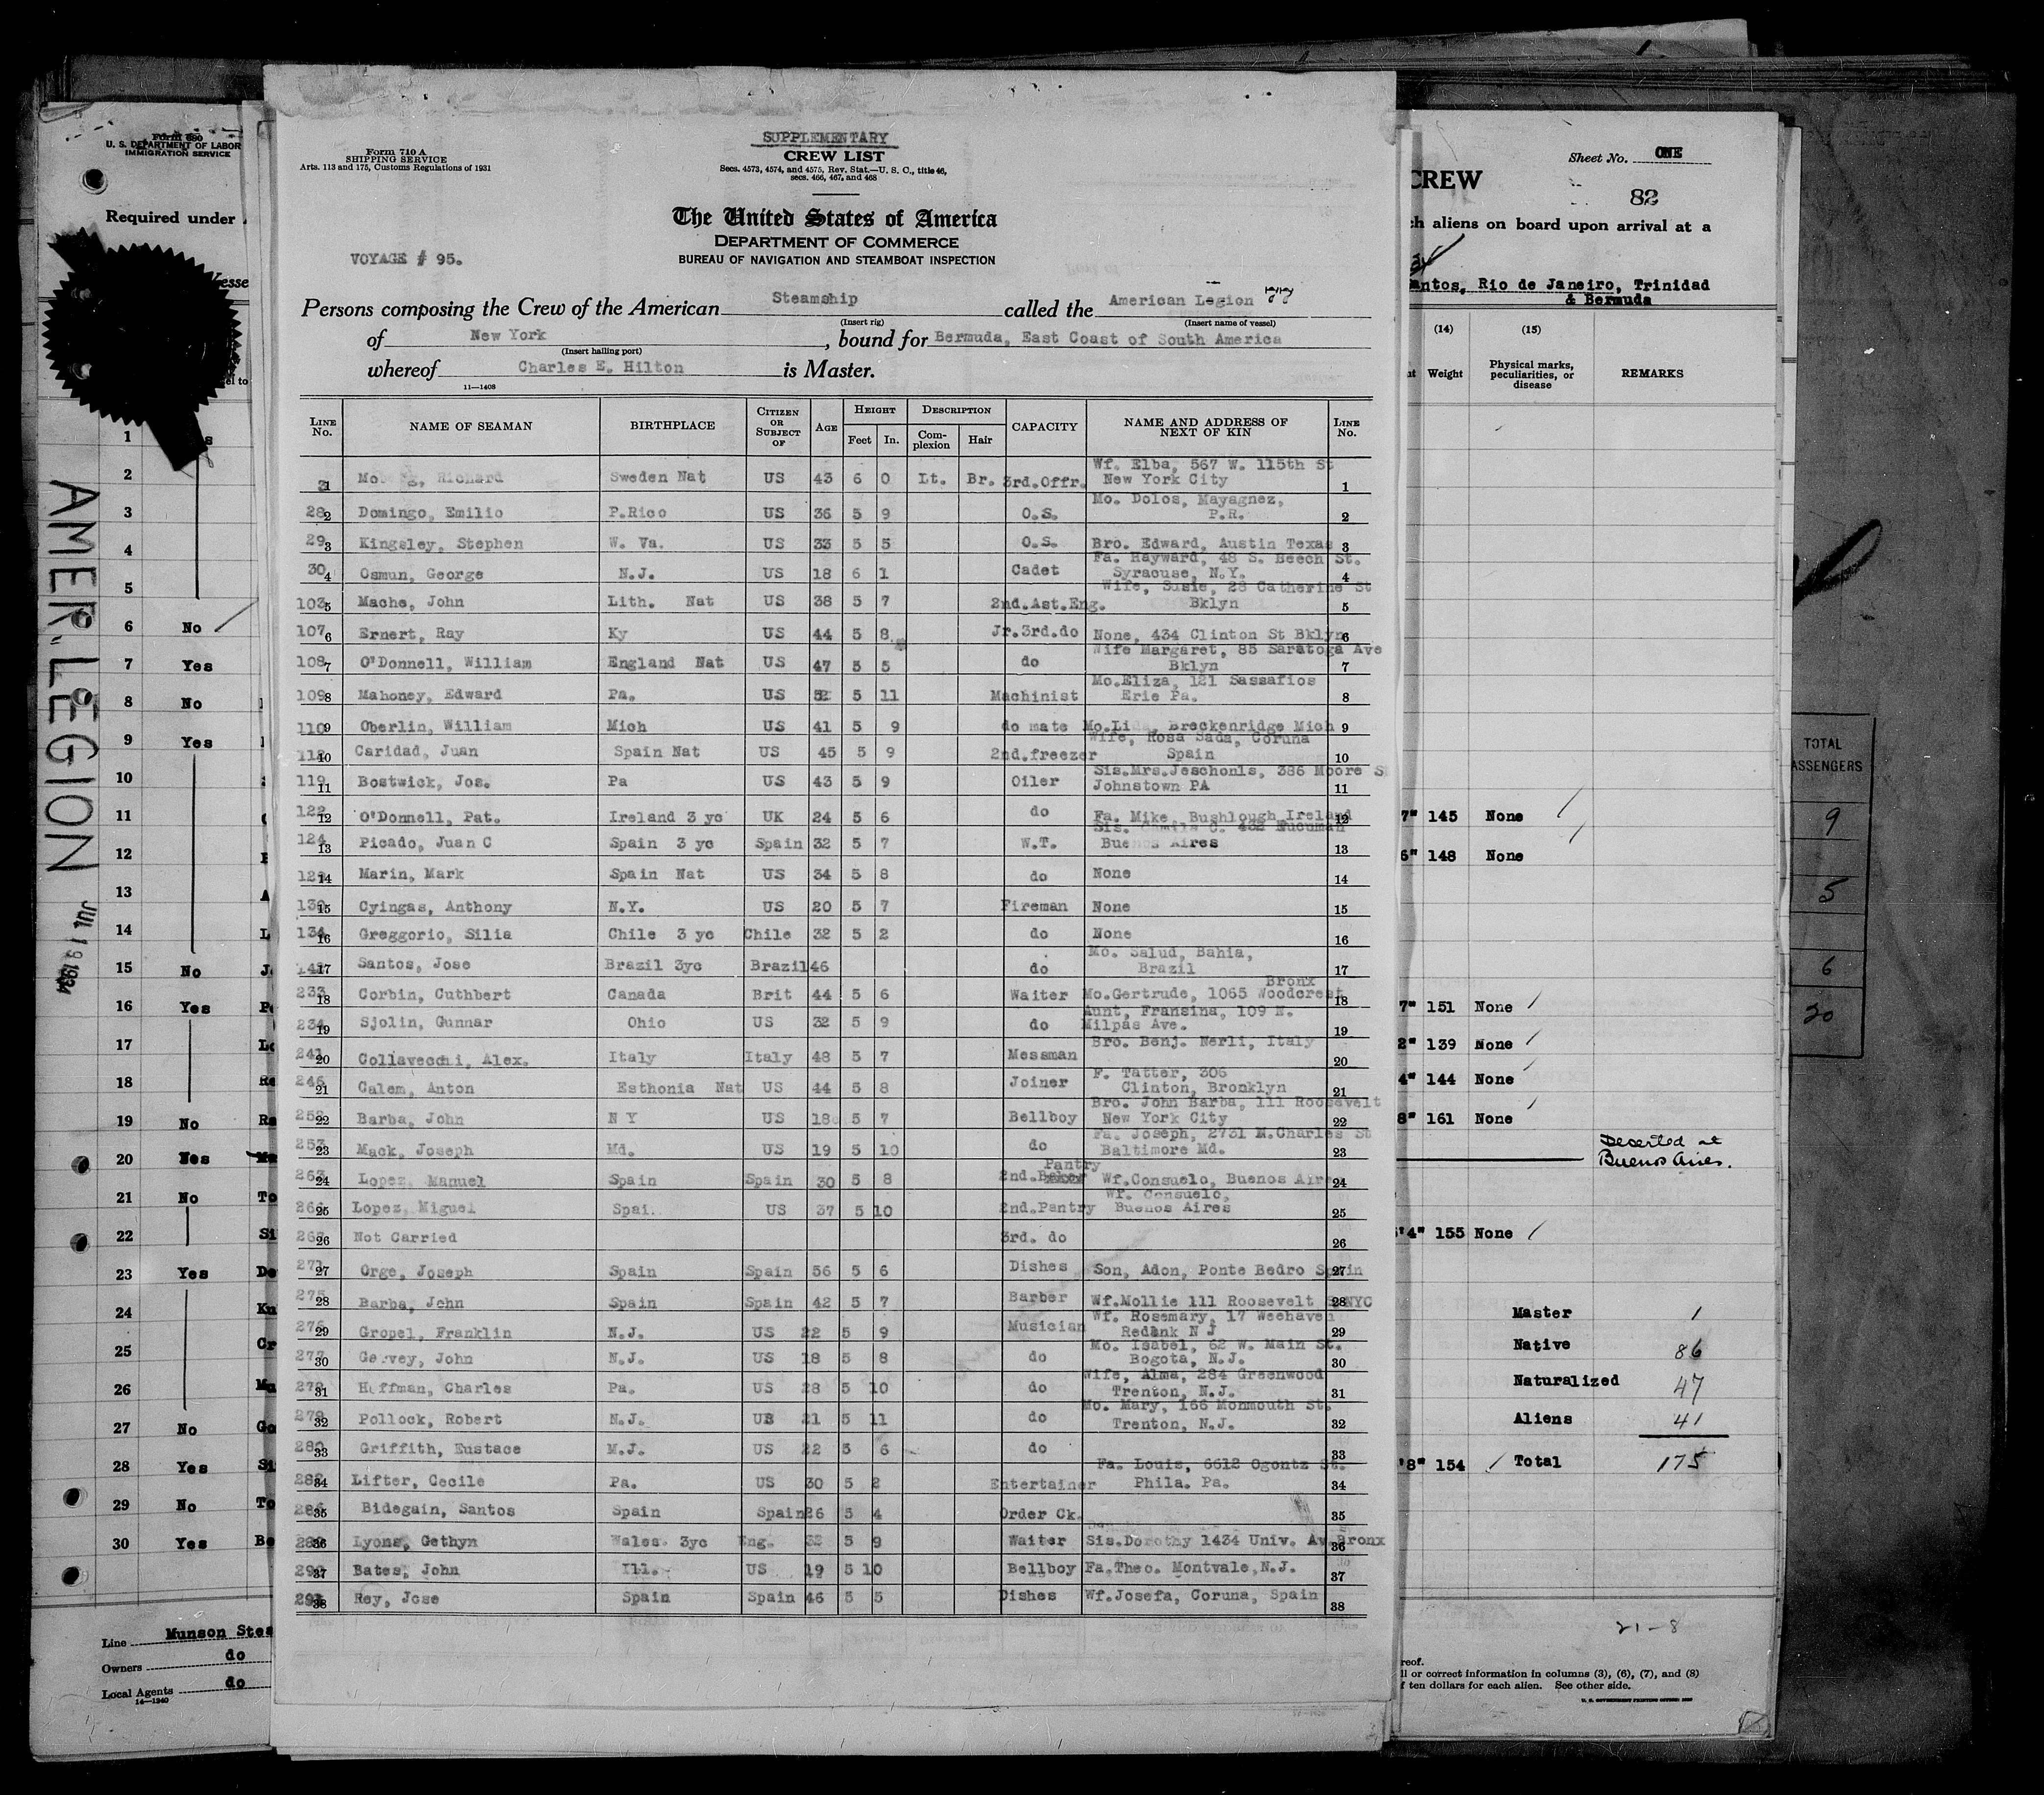 Form 680
U. S. DEPARTMENT OF LABOR
IMMIGRATION SERVICE
Required under
AMER. LEGION
JUL 19 1934
1
2
3
4
5
6 No
7 Yes
8 No
9 Yes
10
11
12
13
14
15 No
16 Yes
17
18
19 No
20 Yes
21 No
22
23 Yes
24
25
26
27 No
28 Yes
29 No
30 Yes
Line Munson Stea
Owners do
Local Agents do
14—1240
SUPPLEMENTARY
Form 710 A
SHIPPING SERVICE
Arts. 113 and 175, Customs Regulations of 1931
CREW LIST
Secs. 4573, 4574, and 4575, Rev. Stat.—U. S. C., title 46,
secs. 466, 467, and 468
The United States of America
DEPARTMENT OF COMMERCE
BUREAU OF NAVIGATION AND STEAMBOAT INSPECTION
VOYAGE # 95.
Persons composing the Crew of the American Steamship called the American Legion
(Insert rig) (Insert name of vessel)
of New York, bound for Bermuda, East Coast of South America
(Insert hailing port)
whereof Charles E. Hilton is Master.
11—1408
LINE NO. NAME OF SEAMAN BIRTHPLACE CITIZEN OR SUBJECT OF AGE HEIGHT Feet In. DESCRIPTION Complexion Hair CAPACITY NAME AND ADDRESS OF NEXT OF KIN LINE NO.
1 Richard Sweden Nat US 43 6 0 Lt. Br. 3rd.Offr. Wf. Elba, 567 W. 115th St New York City 1
28 2 Domingo, Emilio P.Rico US 36 5 9 O.S. Mo. Dolos, Mayagnez, P.R. 2
29 3 Kingsley, Stephen W. Va. US 33 5 5 O.S. Bro. Edward, Austin Texas 3
30 4 Osmun, George N.J. US 18 6 1 Cadet Fa. Hayward, 48 S. Beech St. Syracuse, N.Y. 4
103 5 Mache, John Lith. Nat US 38 5 7 2nd.Ast.Eng. Wife, Susie, 28 Catherine St Bklyn 5
107 6 Ernert, Ray Ky US 44 5 8 Jr.3rd.do None, 434 Clinton St Bklyn 6
108 7 O'Donnell, William England Nat US 47 5 5 do Wife Margaret, 85 Saratoga Ave Bklyn 7
109 8 Mahoney, Edward Pa. US 52 5 11 Machinist Mo.Eliza, 121 Sassafios Erie Pa. 8
110 9 Oberlin, William Mich US 41 5 9 do mate Breckenridge Mich 9
10 Caridad, Juan Spain Nat US 45 5 9 2nd.freezer Wife, Rosa Sada, Coruna Spain 10
119 11 Bostwick, Jos. Pa US 43 5 9 Oiler Sis.Mrs.Jeschonls, 386 Moore S Johnstown PA 11
122 12 O'Donnell, Pat. Ireland 3 yc UK 24 5 6 do Fa. Mike, Bushlough Ireland 12
124 13 Picado, Juan C Spain 3 yc Spain 32 5 7 W.T. Sis. C. 432 Tucuman Buenos Aires 13
14 Marin, Mark Spain Nat US 34 5 8 do None 14
130 15 Cyingas, Anthony N.Y. US 20 5 7 Fireman None 15
134 16 Greggorio, Silia Chile 3 yc Chile 32 5 2 do None 16
17 Santos, Jose Brazil 3yc Brazil 46 do Mo. Salud, Bahia, Brazil 17
233 18 Corbin, Cuthbert Canada Brit 44 5 6 Waiter Mo.Gertrude, 1065 Woodcrest Bronx 18
234 19 Sjolin, Gunnar Ohio US 32 5 9 do Aunt, Fransina, 109 N. Milpas Ave. 19
241 20 Collavecchi, Alex. Italy Italy 48 5 7 Messman Bro. Benj. Nerli, Italy 20
246 21 Calem, Anton Esthonia Nat US 44 5 8 Joiner F. Tatter, 306 Clinton, Bronklyn 21
252 22 Barba, John N Y US 18 5 7 Bellboy Bro. John Barba, 111 Roosevelt New York City 22
253 23 Mack, Joseph Md. US 19 5 10 do Fa. Joseph, 2731 N.Charles St Baltimore Md. 23
263 24 Lopez, Manuel Spain Spain 30 5 8 2nd. Pantry Wf.Consuelo, Buenos Aire 24
25 Lopez, Miguel Spai US 37 5 10 2nd.Pantry Wf. Consuelo, Buenos Aires 25
26 Not Carried 3rd. do 26
271 27 Orge, Joseph Spain Spain 56 5 6 Dishes Son, Adon, Ponte Bedro Spain 27
275 28 Barba, John Spain Spain 42 5 7 Barber Wf.Mollie 111 Roosevelt NYC 28
276 29 Gropel, Franklin N.J. US 22 5 9 Musician Wf. Rosemary, 17 Weehaven Redbnk N J 29
277 30 Garvey, John N.J. US 18 5 8 do Mo. Isabel, 62 W. Main St. Bogota, N.J. 30
278 31 Hoffman, Charles Pa. US 28 5 10 do Wife, Alma, 284 Greenwood Trenton, N.J. 31
279 32 Pollock, Robert N.J. US 21 5 11 do Mo. Mary, 166 Monmouth St. Trenton, N.J. 32
280 33 Griffith, Eustace M.J. US 22 5 6 do 33
34 Lifter, Cecile Pa. US 30 5 2 Entertainer Fa. Louis, 6612 Ogontz St. Phila. Pa. 34
35 Bidegain, Santos Spain Spain 26 5 4 Order Ck. 35
36 Lyons, Gethyn Wales 3yc Eng. 32 5 9 Waiter Sis.Dorothy 1434 Univ. Av Bronx 36
37 Bates, John Ill. US 19 5 10 Bellboy Fa.Theo. Montvale,N.J. 37
38 Rey, Jose Spain Spain 46 5 5 Dishes Wf.Josefa, Coruna, Spain 38
Sheet No. ONE
CREW
82
ch aliens on board upon arrival at a
antos, Rio de Janeiro, Trinidad
& Bermuda
(14) (15)
Weight Physical marks, peculiarities, or disease REMARKS
7" 145 None
6" 148 None
7" 151 None
2" 139 None
4" 144 None
8" 161 None
Deserted at
Buenos Aires.
'4" 155 None
Master 1
Native 86
Naturalized 47
Aliens 41
'8" 154 Total 175
21-8
reof.
ll or correct information in columns (3), (6), (7), and (8)
f ten dollars for each alien. See other side.
U. S. GOVERNMENT PRINTING OFFICE
TOTAL
ASSENGERS
9
5
6
20